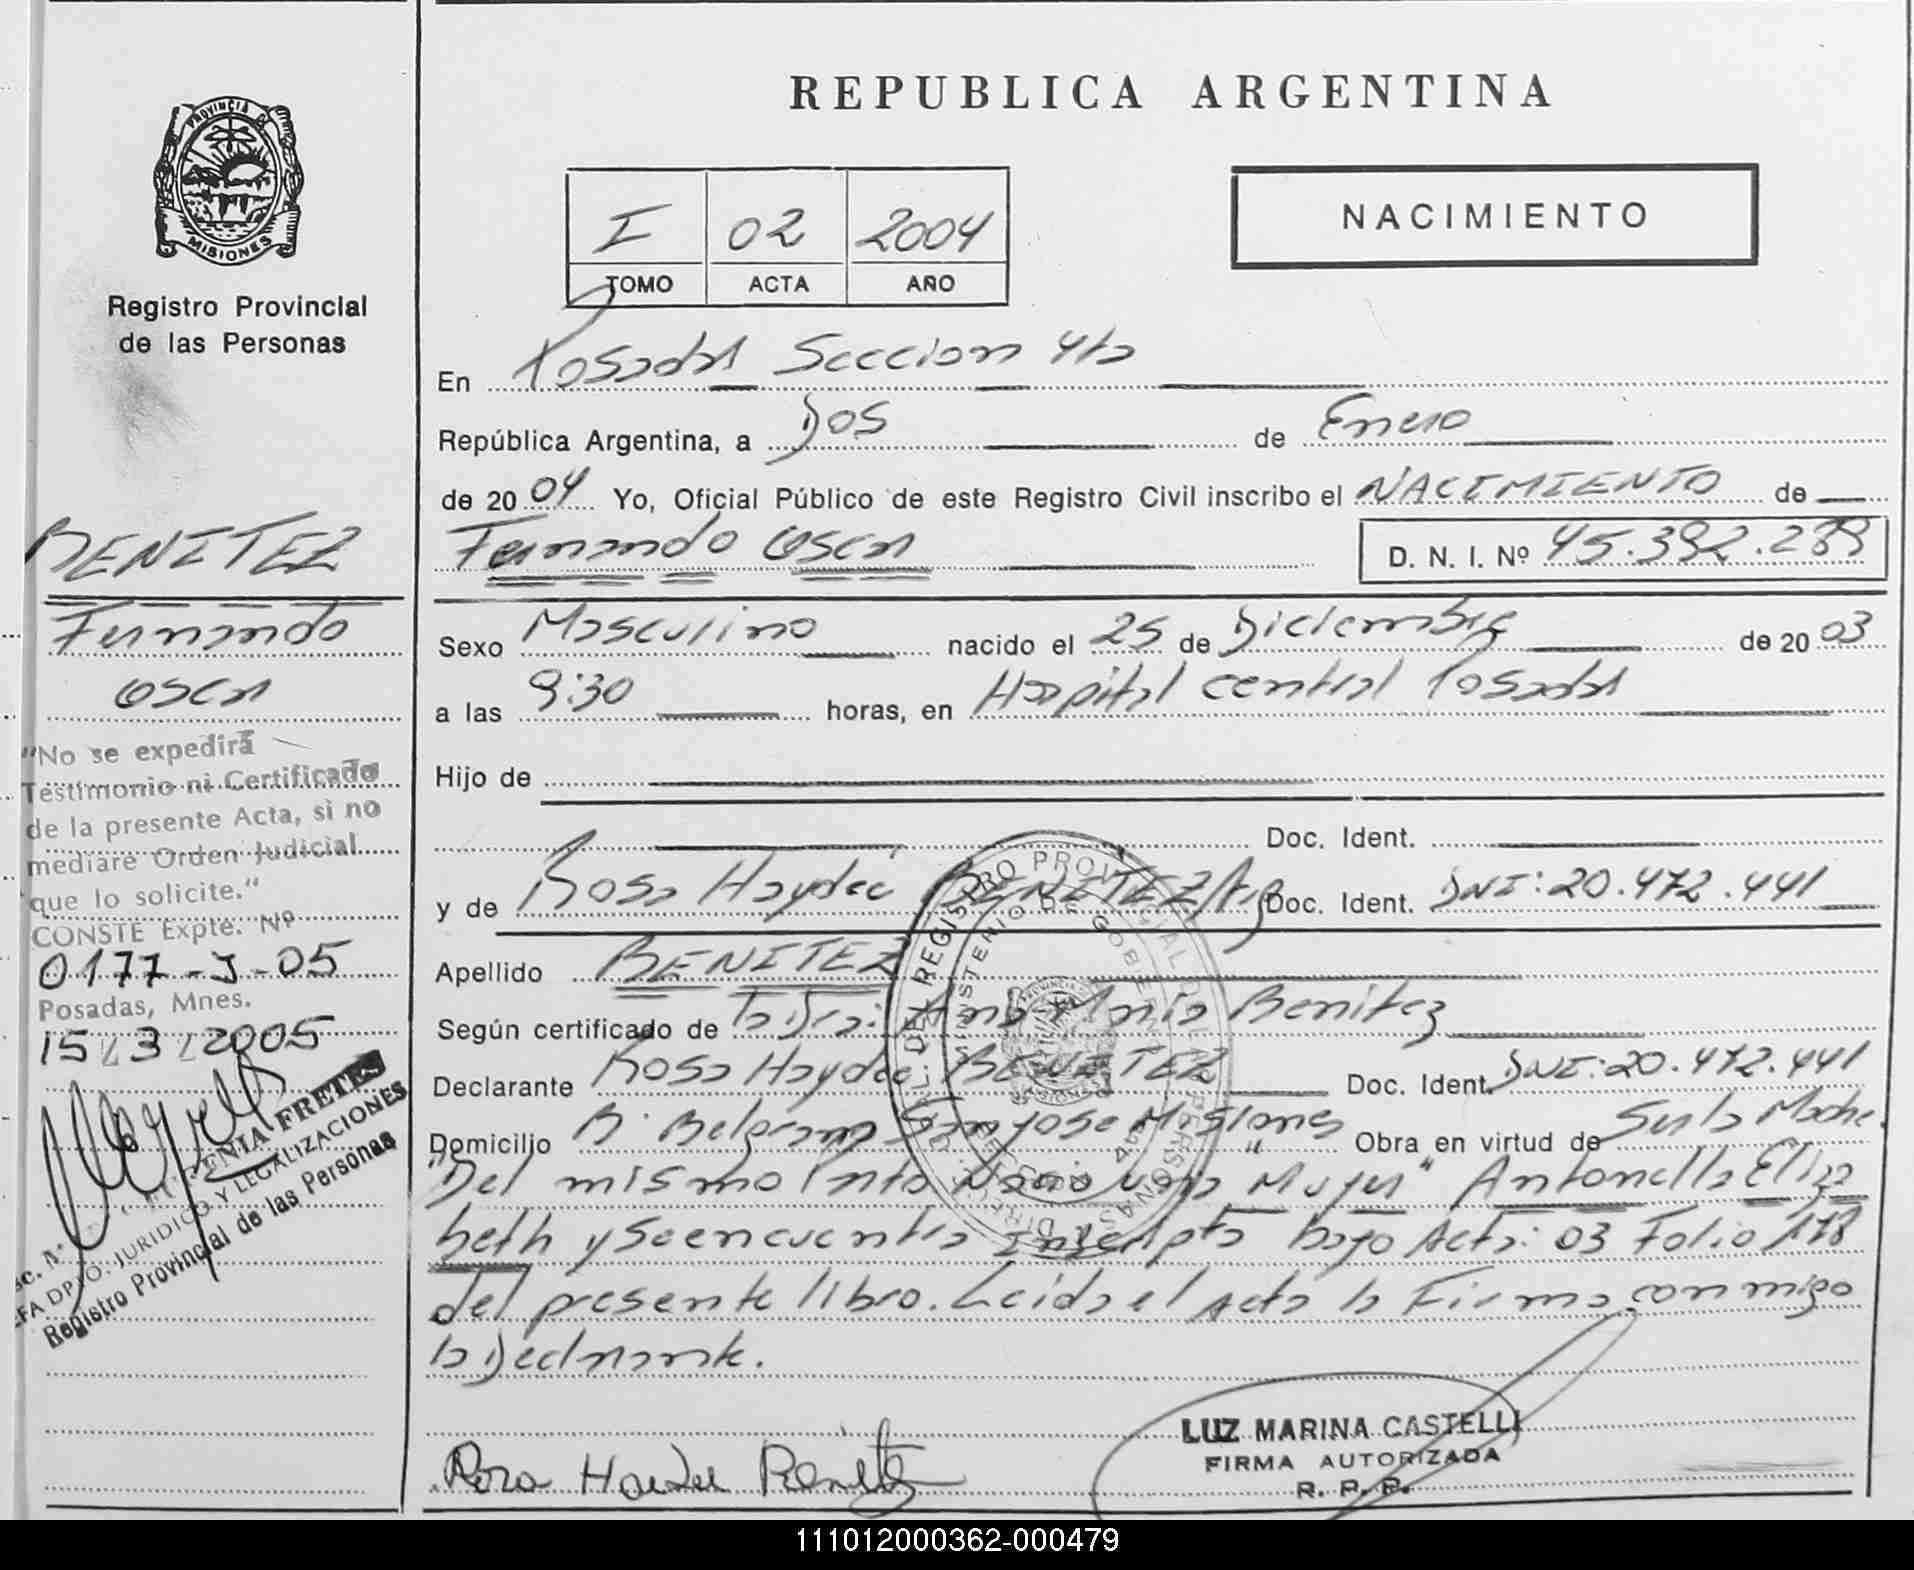 PROVINCIA DE
MISIONES
Registro Provincial
de las Personas
BENITEZ
Fernando
Oscar
"No se expedirá
Testimonio ni Certificado
de la presente Acta, si no
mediare Orden Judicial
que lo solicite."
CONSTE Expte. Nº
0177-J-05
Posadas, Mnes.
15/3/2005
ENIA FRETES
JURIDICO Y LEGALIZACIONES
Registro Provincial de las Personas
REPUBLICA ARGENTINA
I 02 2004
TOMO ACTA AÑO
NACIMIENTO
En Posadas Seccion 4ta
República Argentina, a Dos de Enero
de 2004 Yo, Oficial Público de este Registro Civil inscribo el NACIMIENTO de
Fernando Oscar D. N. I. Nº 45.392.289
Sexo Masculino nacido el 25 de Diciembre de 2003
a las 9:30 horas, en Hospital central Posadas
Hijo de
Doc. Ident.
y de Rosa Haydeé BENITEZ Arg Doc. Ident. DNI: 20.472.441
Apellido BENITEZ
Según certificado de la Dra: Ana Maria Benitez
Declarante Rosa Haydeé BENITEZ Doc. Ident. DNI: 20.472.441
Domicilio B° Belgrano San Jose Misiones Obra en virtud de Ser la Madre.
"Del mismo Parto Nacio una Mujer" Antonella Eliza
beth y se encuentra Inscripta bajo Acta: 03 Folio 178
del presente libro. Leida el Acta la Firma conmigo
la Declarante.
Rosa Haydee Benitez
LUZ MARINA CASTELLI
FIRMA AUTORIZADA
R. P. P.
111012000362-000479